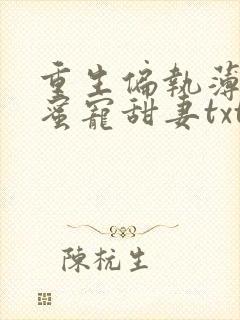 重生偏執薄
蜜寵甜妻txt
陳杬生